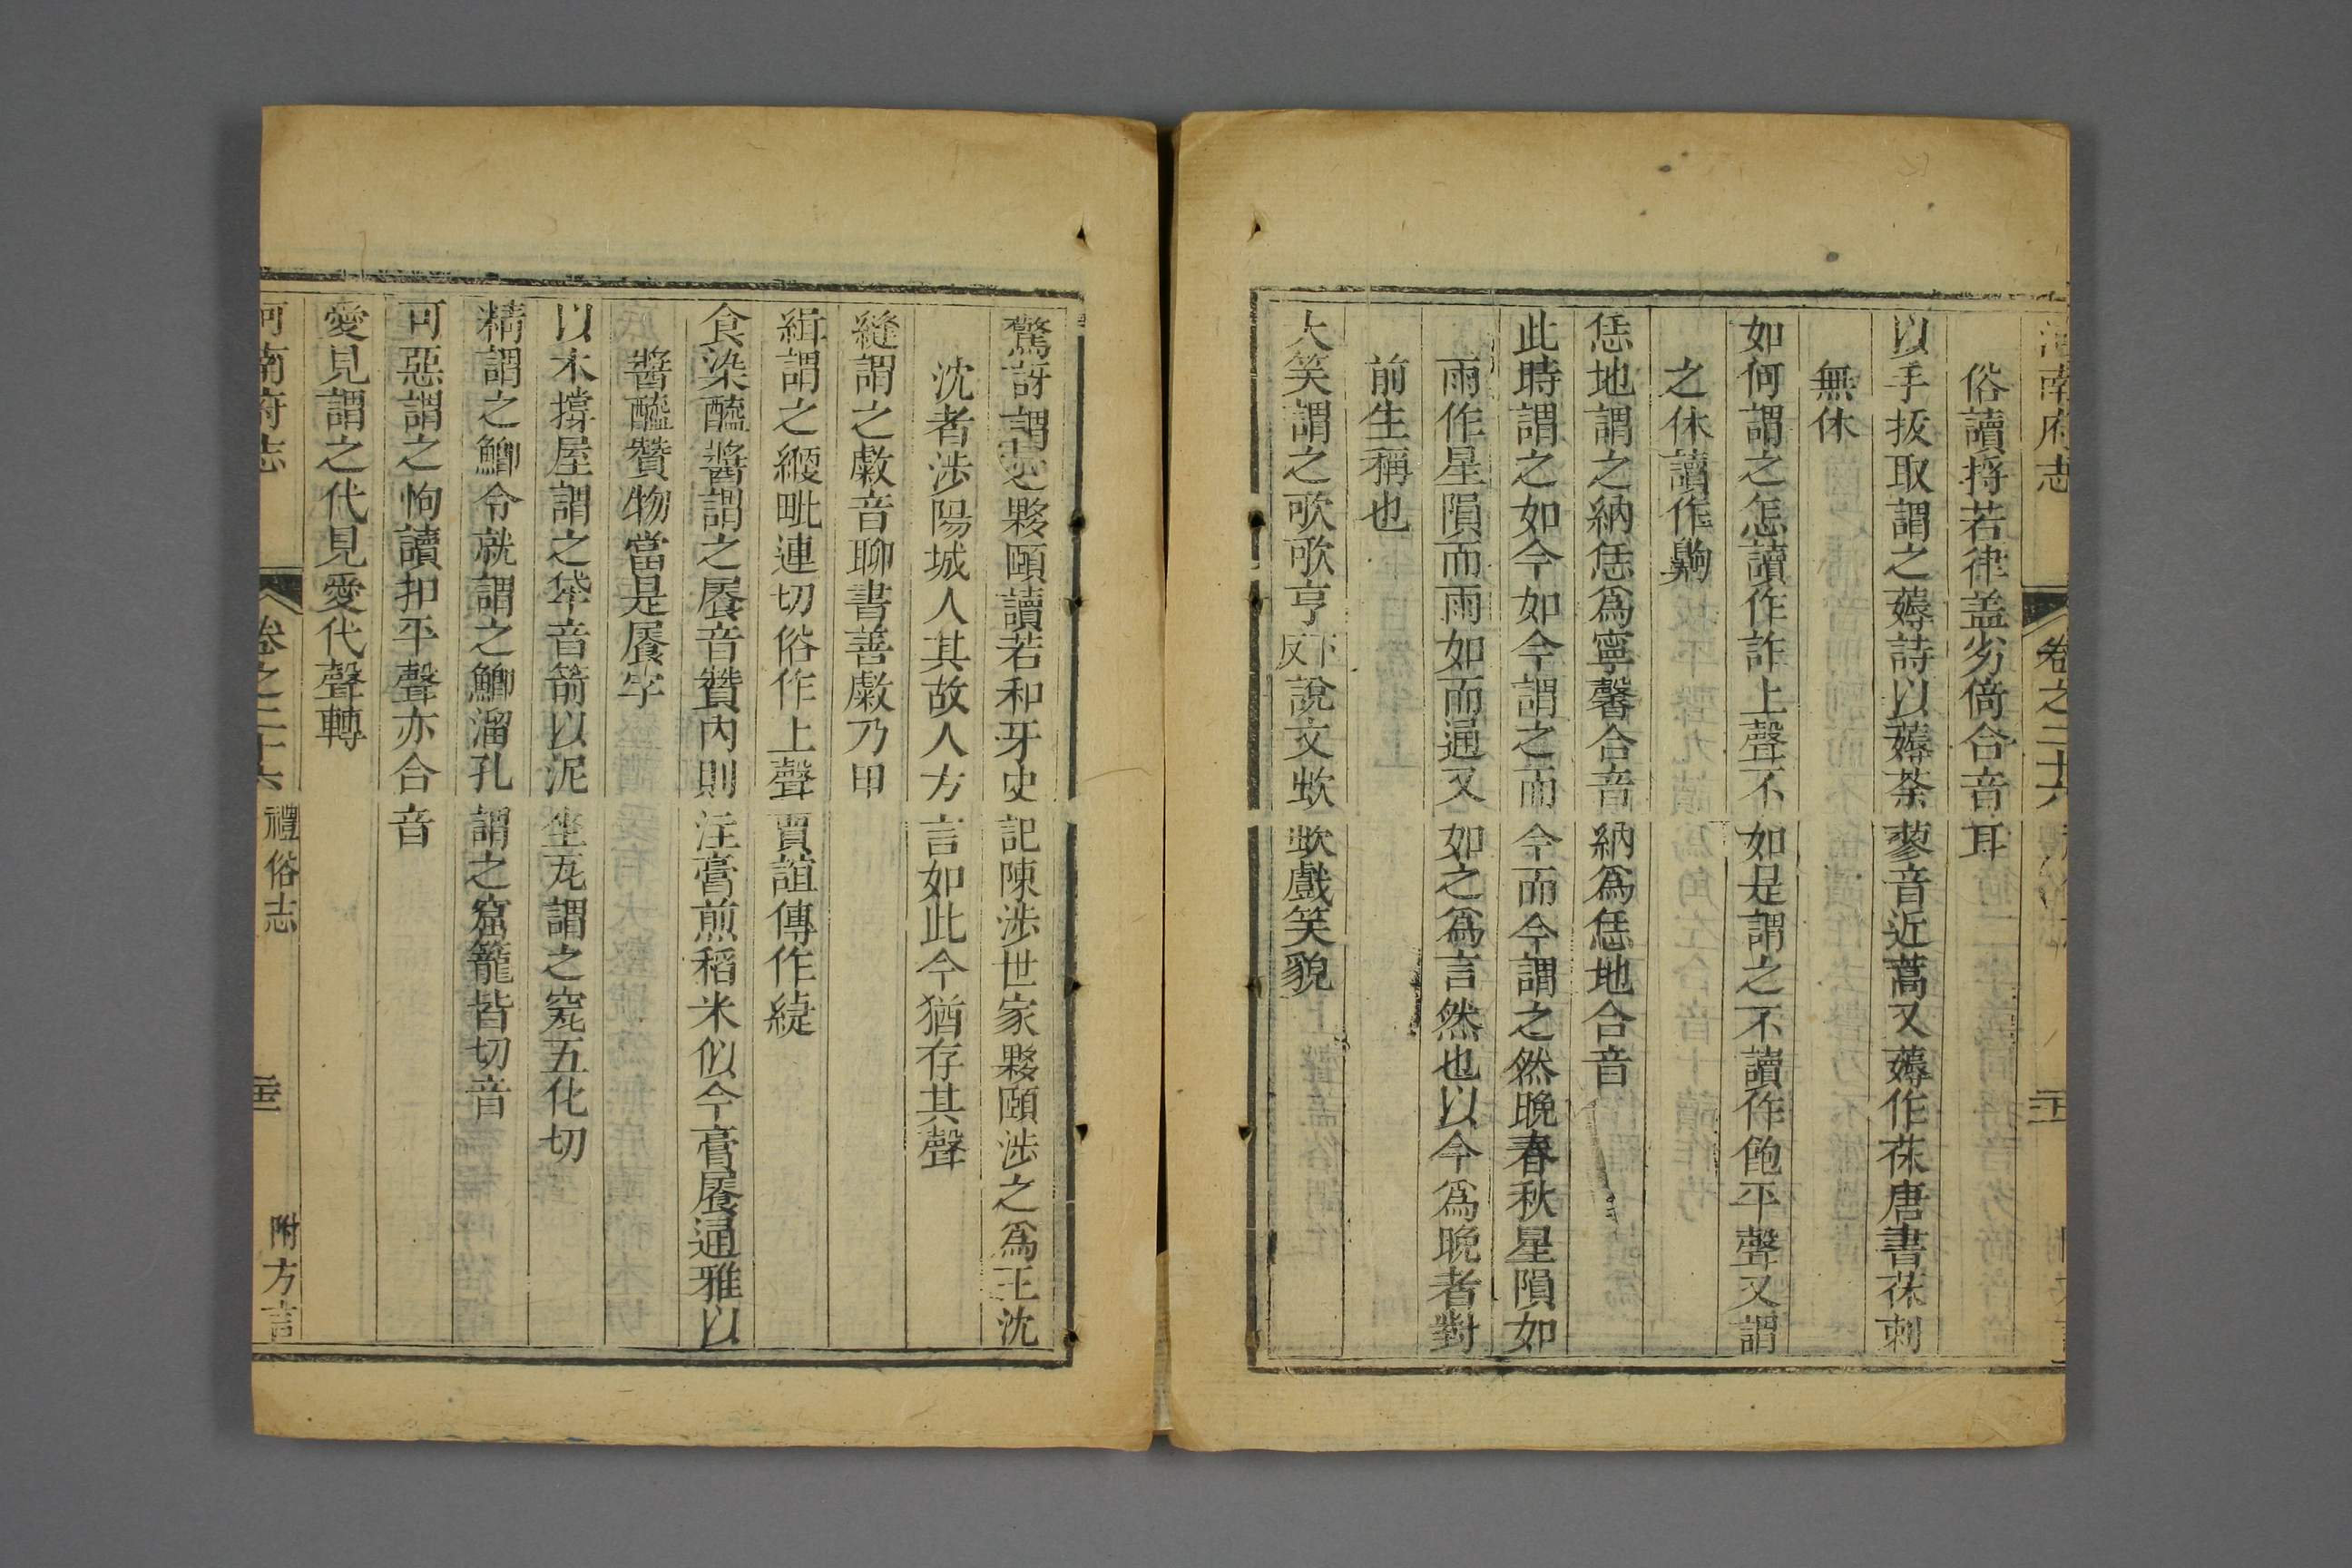 河南府志 卷之二十六
俗讀捋若律盖劣倚合音耳
以手拔取謂之薅詩以薅荼蓼音近蒿又薅作茠唐書茠刺
無休
如何謂之怎讀作詐上聲不如是謂之不讀作飽平聲又謂
之休讀作
恁地謂之納恁爲寧馨合音納爲恁地合音
此時謂之如今如今謂之而今而今謂之然晚春秋星隕如
雨作星隕而雨如而通又如之爲言然也以今爲晚者對
前生稱也
大笑謂之歌歌亨下反說文㰞㰞戲笑貌
驚訝謂之夥頤讀若和牙史記陳涉世家夥頤涉之爲王沈
沈者涉陽城人其故人方言如此今猶存其聲
縫謂之敹音聊書善敹乃甲
緝謂之緶毗連切俗作上聲賈誼傳作緁
食染醯醬謂之饡音贊內則注膏煎稻米似今膏饡通雅以
醬醯贊物當是饡字
以木撐屋謂之牮音箭以泥坐瓦謂之宽五化切
精謂之鯽令就謂之鯽溜孔謂之窟籠皆切音
可惡謂之怐讀扣平聲亦合音
愛見謂之代見愛代聲轉
河南府志 卷之二十六 禮俗志 附方言